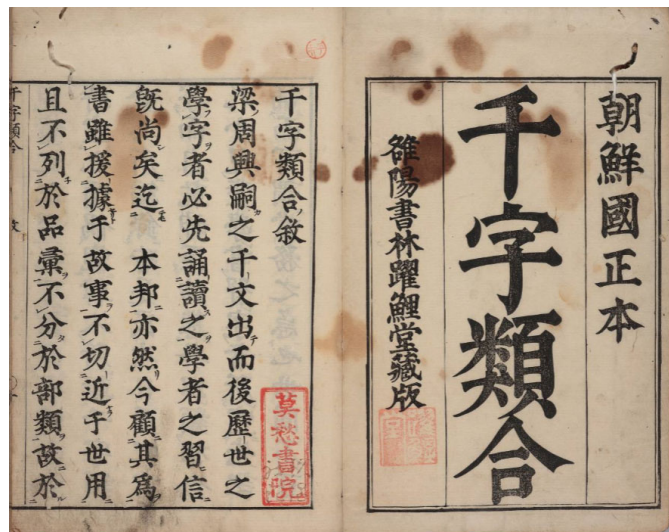 朝鮮國正本
千字類合
雒陽書林躍鯉堂藏版
千字類合敘
梁周興嗣之千文出而後歷世之
學字者必先誦讀之學者之習信
既尚矣迄　本邦亦然今顧其爲
書雖援據于故事不切近于世用
且不列於品彙不分於部類故於
莫愁書院
千字類合